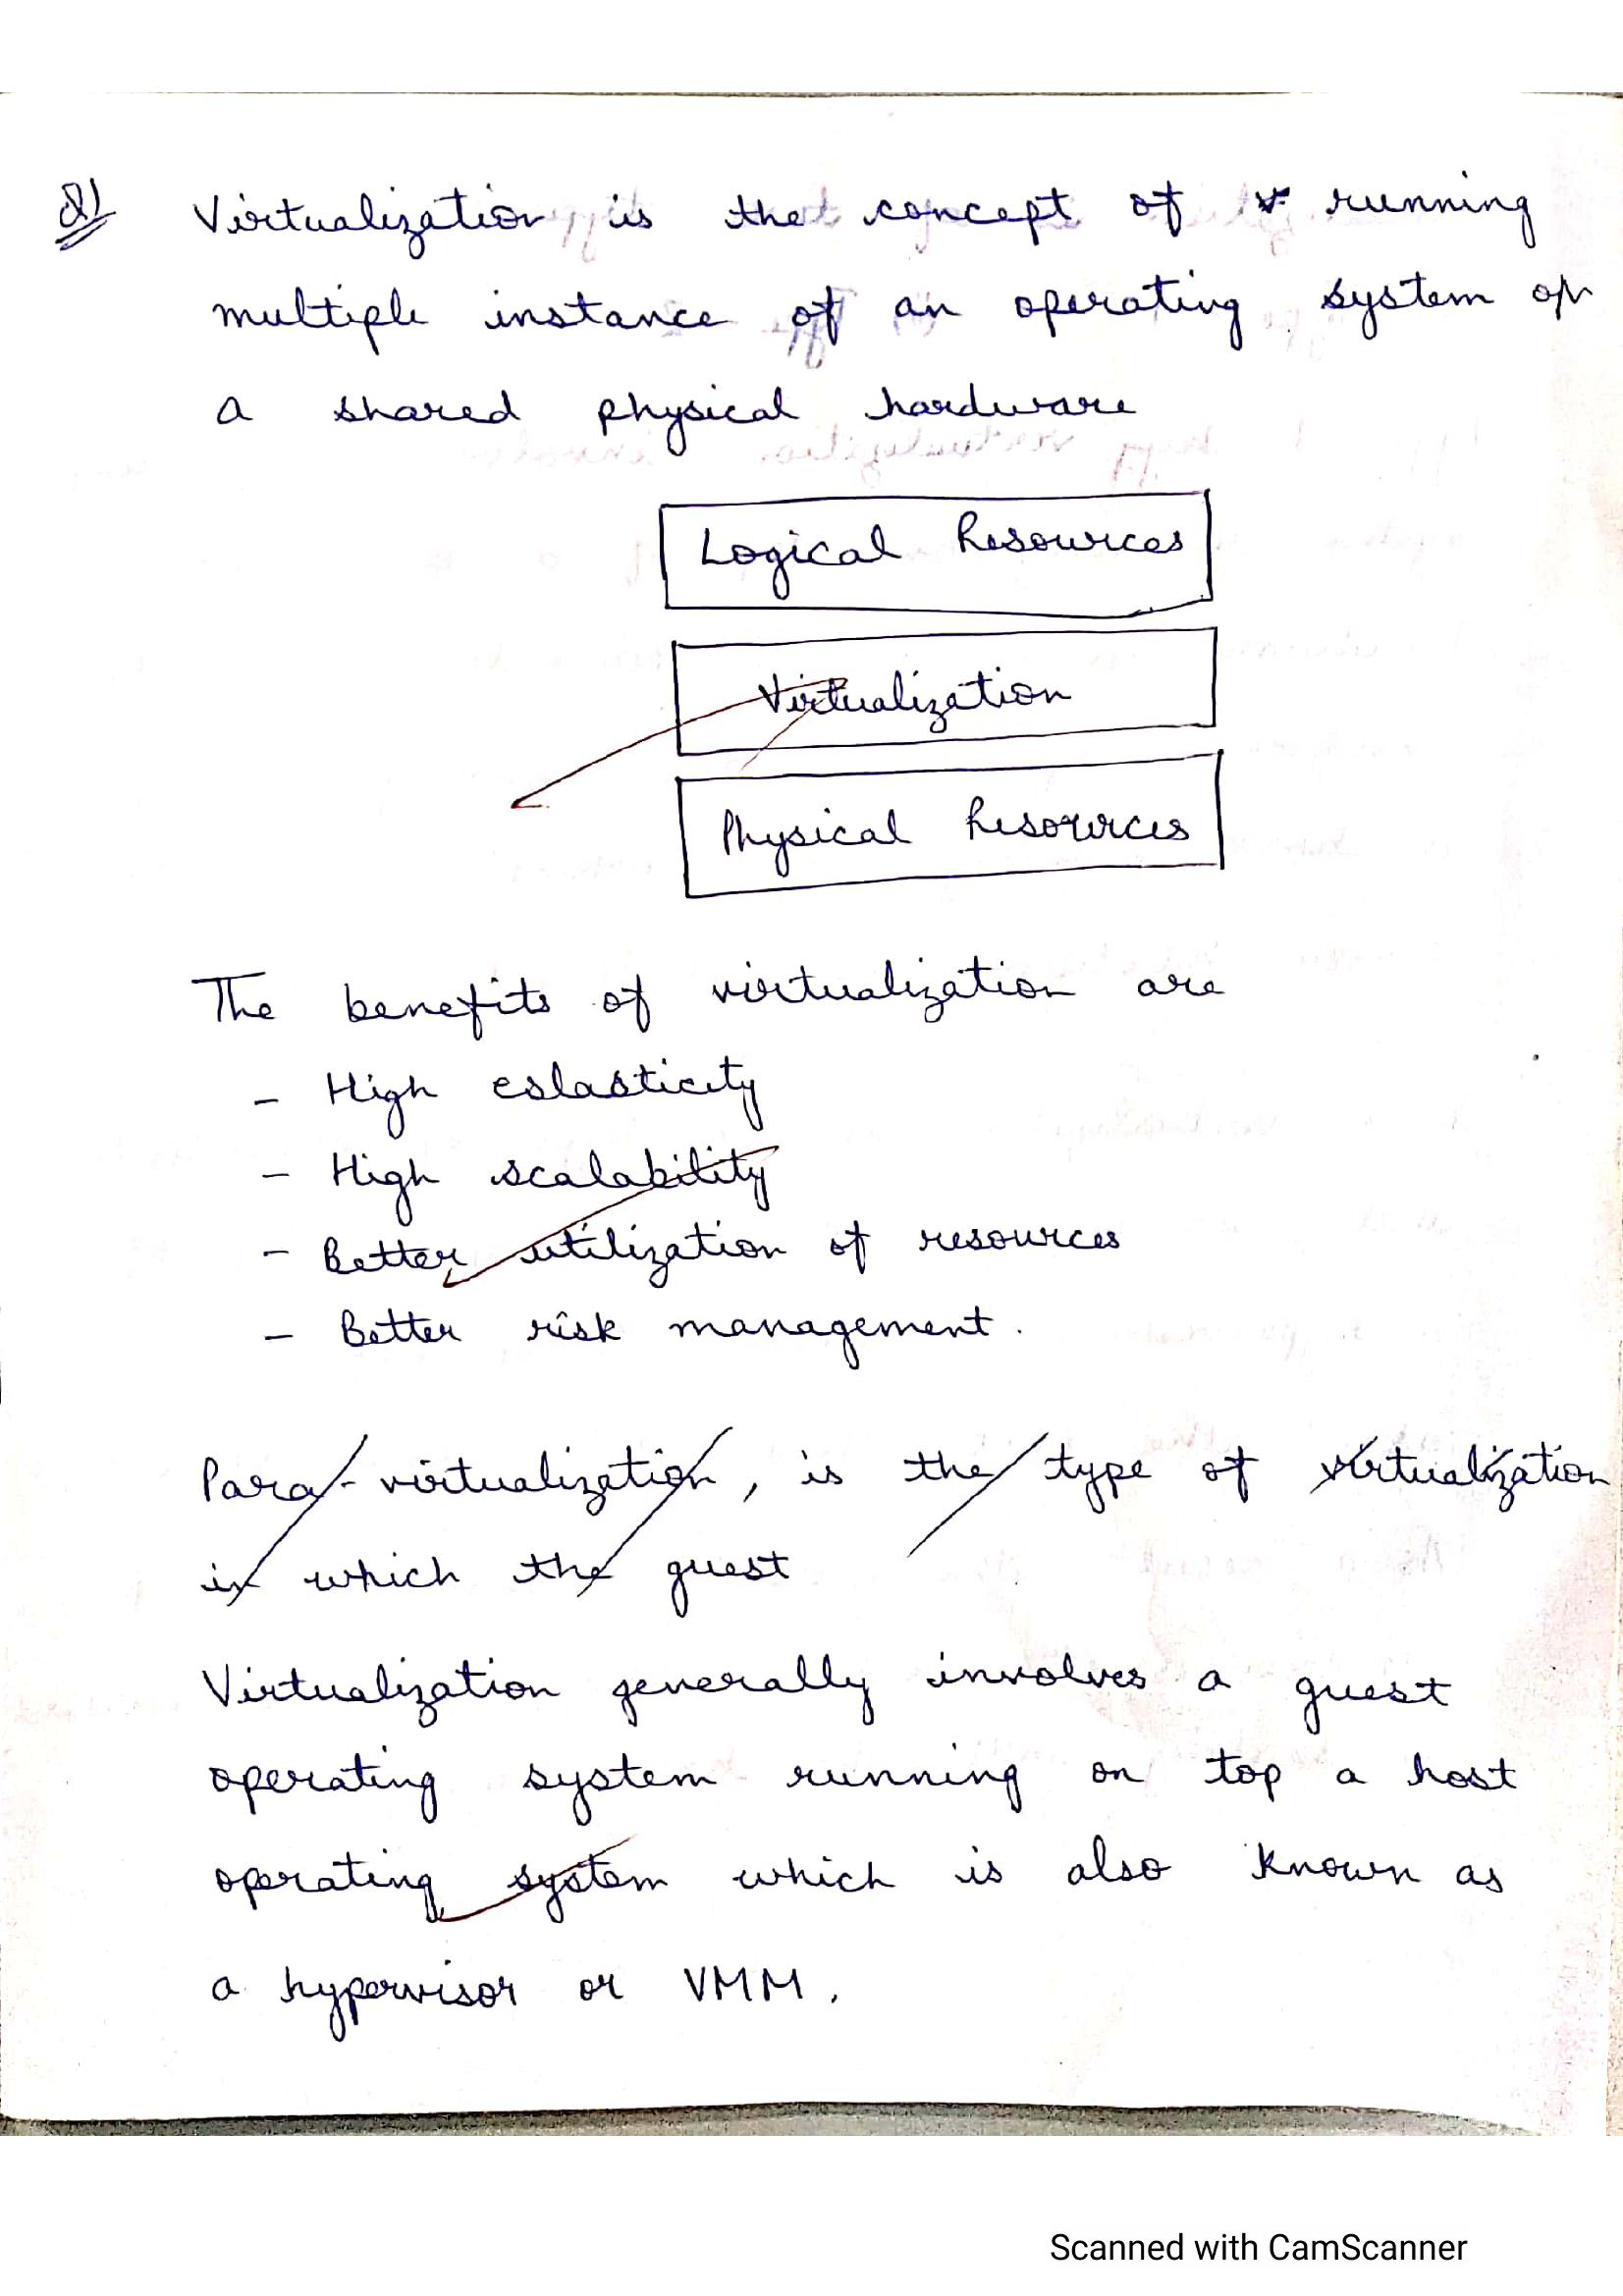 Virtualization is the concept of running
multiple instance of an operating system on
a shared physical hardware
Logical Resources
Virtualization
Physical Resources
The benefits of virtualization are
- High eslasticity
- High scalability
- Better utilization of resources
- Better risk management.
Para-virtualization, is the type of virtualization
in which the guest
Virtualization generally involves a guest
operating system running on top a host
operating system which is also known as
a hypervisor or VMM.
Scanned with CamScanner